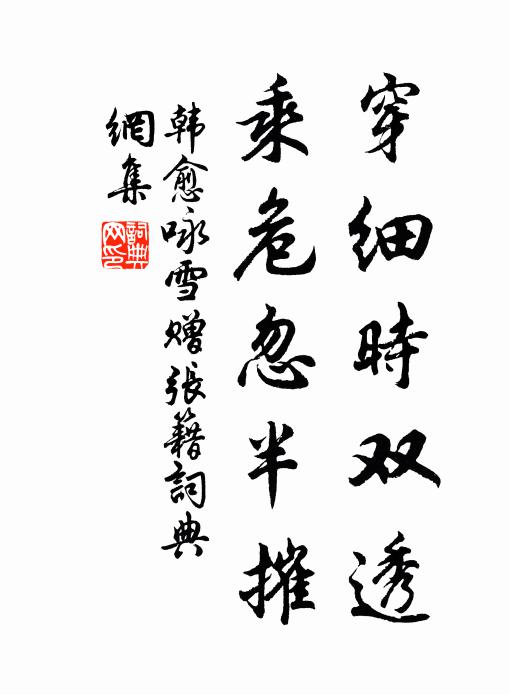 穿细時双透
乘危忽半摧
韩愈咏雪赠張籍詞典
網集
詞典网印